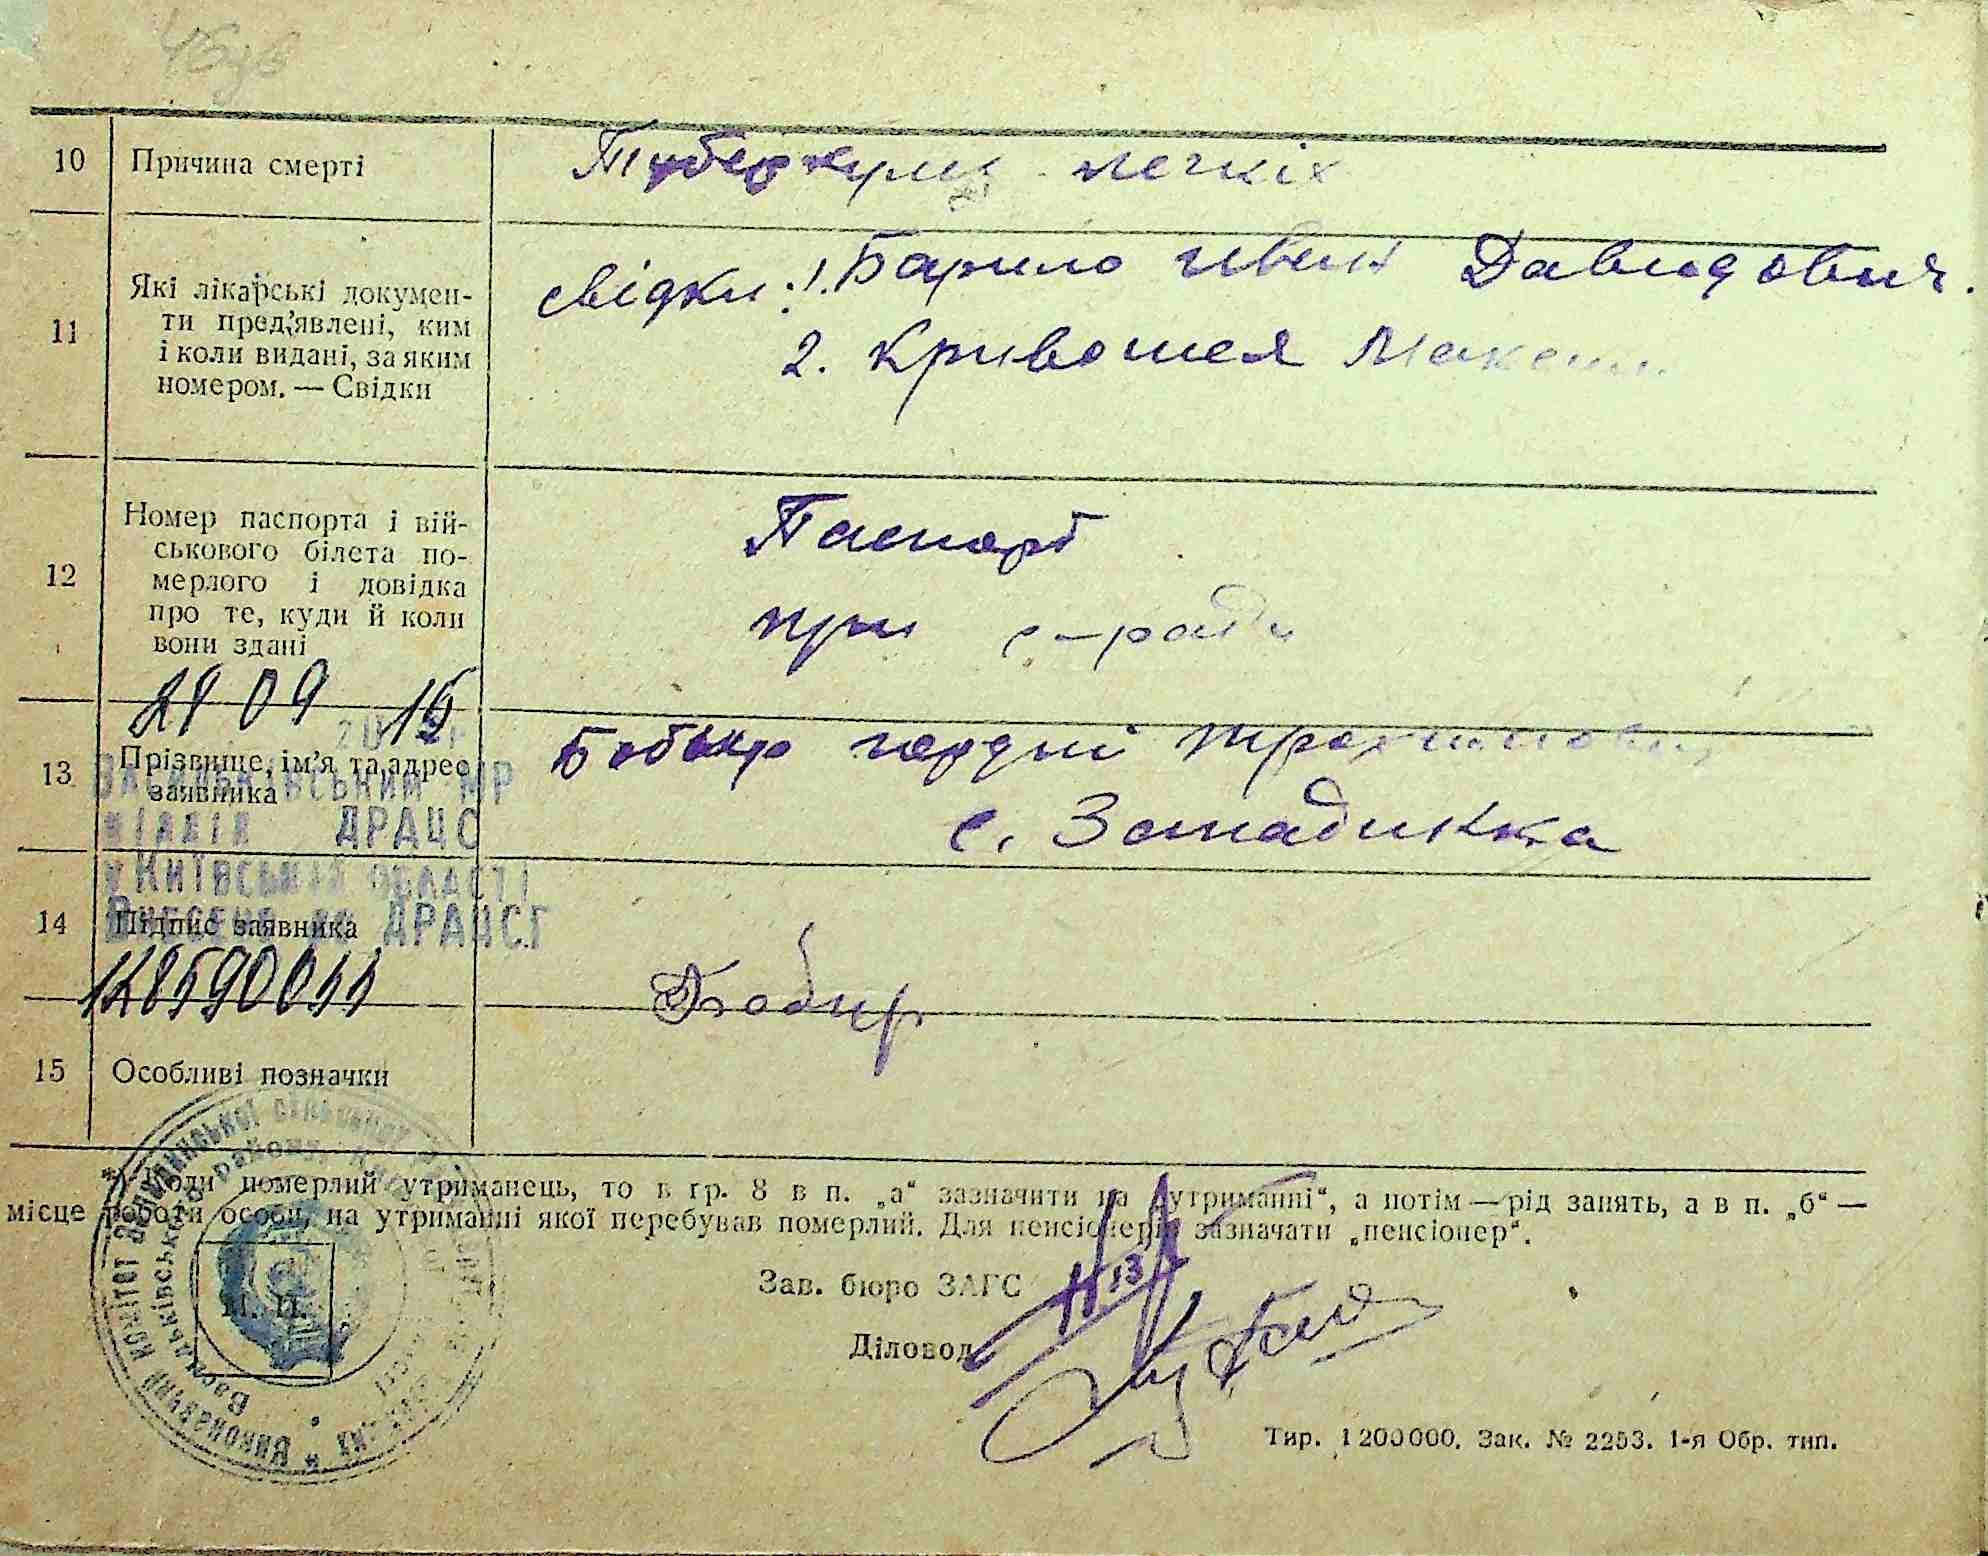 10 Причина смерті
легкіх
11 Які лікарські докумен-
ти пред'явлені, ким
і коли видані, за яким
номером. — Свідки
свідки: 1. Барило Іван Давидович.
2. Кривошея Максим
12 Номер паспорта і вій-
ськового білета по-
мерлого і довідка
про те, куди й коли
вони здані
Паспорт
при с-раді
29 09 15
13 Прізвище, ім'я та адрес
заявника
гордій трохимович
с. Застадинка
Васильківським МР
відділ ДРАЦС
у Київській області
Внесено до ДРАЦСГ
14 Підпис заявника
15 Особливі позначки
*) Коли померлий утриманець, то в гр. 8 в п. „а“ зазначити на „утриманні“, а потім — рід занять, а в п. „б“ —
місце роботи особи, на утриманні якої перебував померлий. Для пенсіонерів зазначати „пенсіонер“.
Зав. бюро ЗАГС
Діловод
М. П.
Виконавчий комітет
Васильківського району
Тир. 1200000. Зак. № 2253. 1-я Обр. тип.